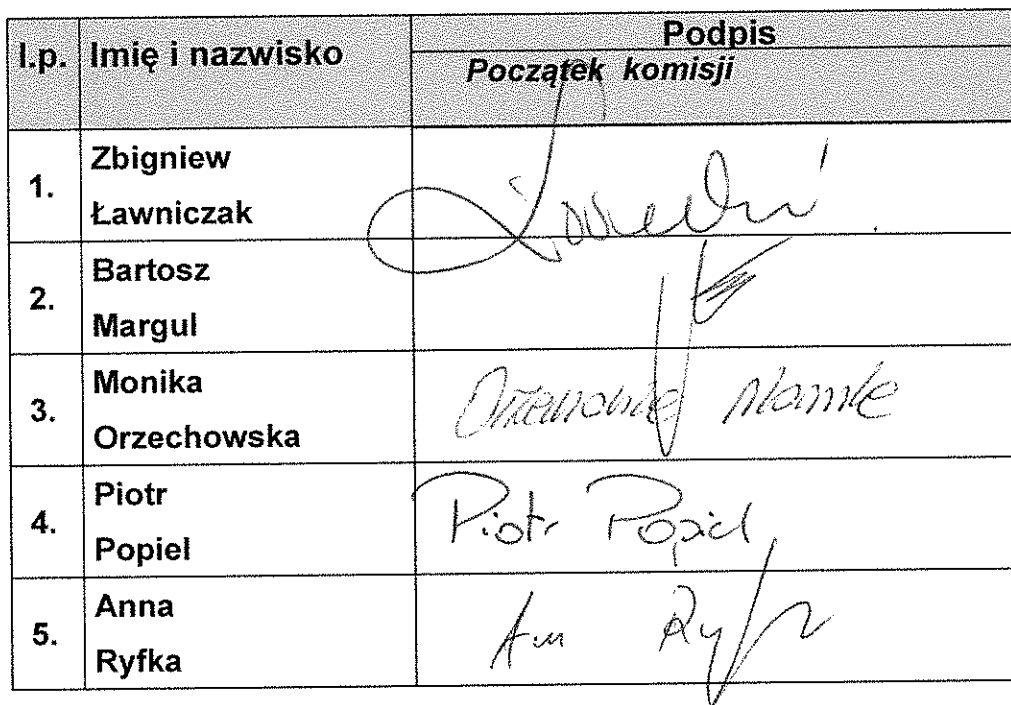 l.p. Imię i nazwisko Podpis
Początek komisji
1. Zbigniew
Ławniczak
2. Bartosz
Margul
3. Monika
Orzechowska
4. Piotr
Popiel
Piotr Popiel
5. Anna
Ryfka